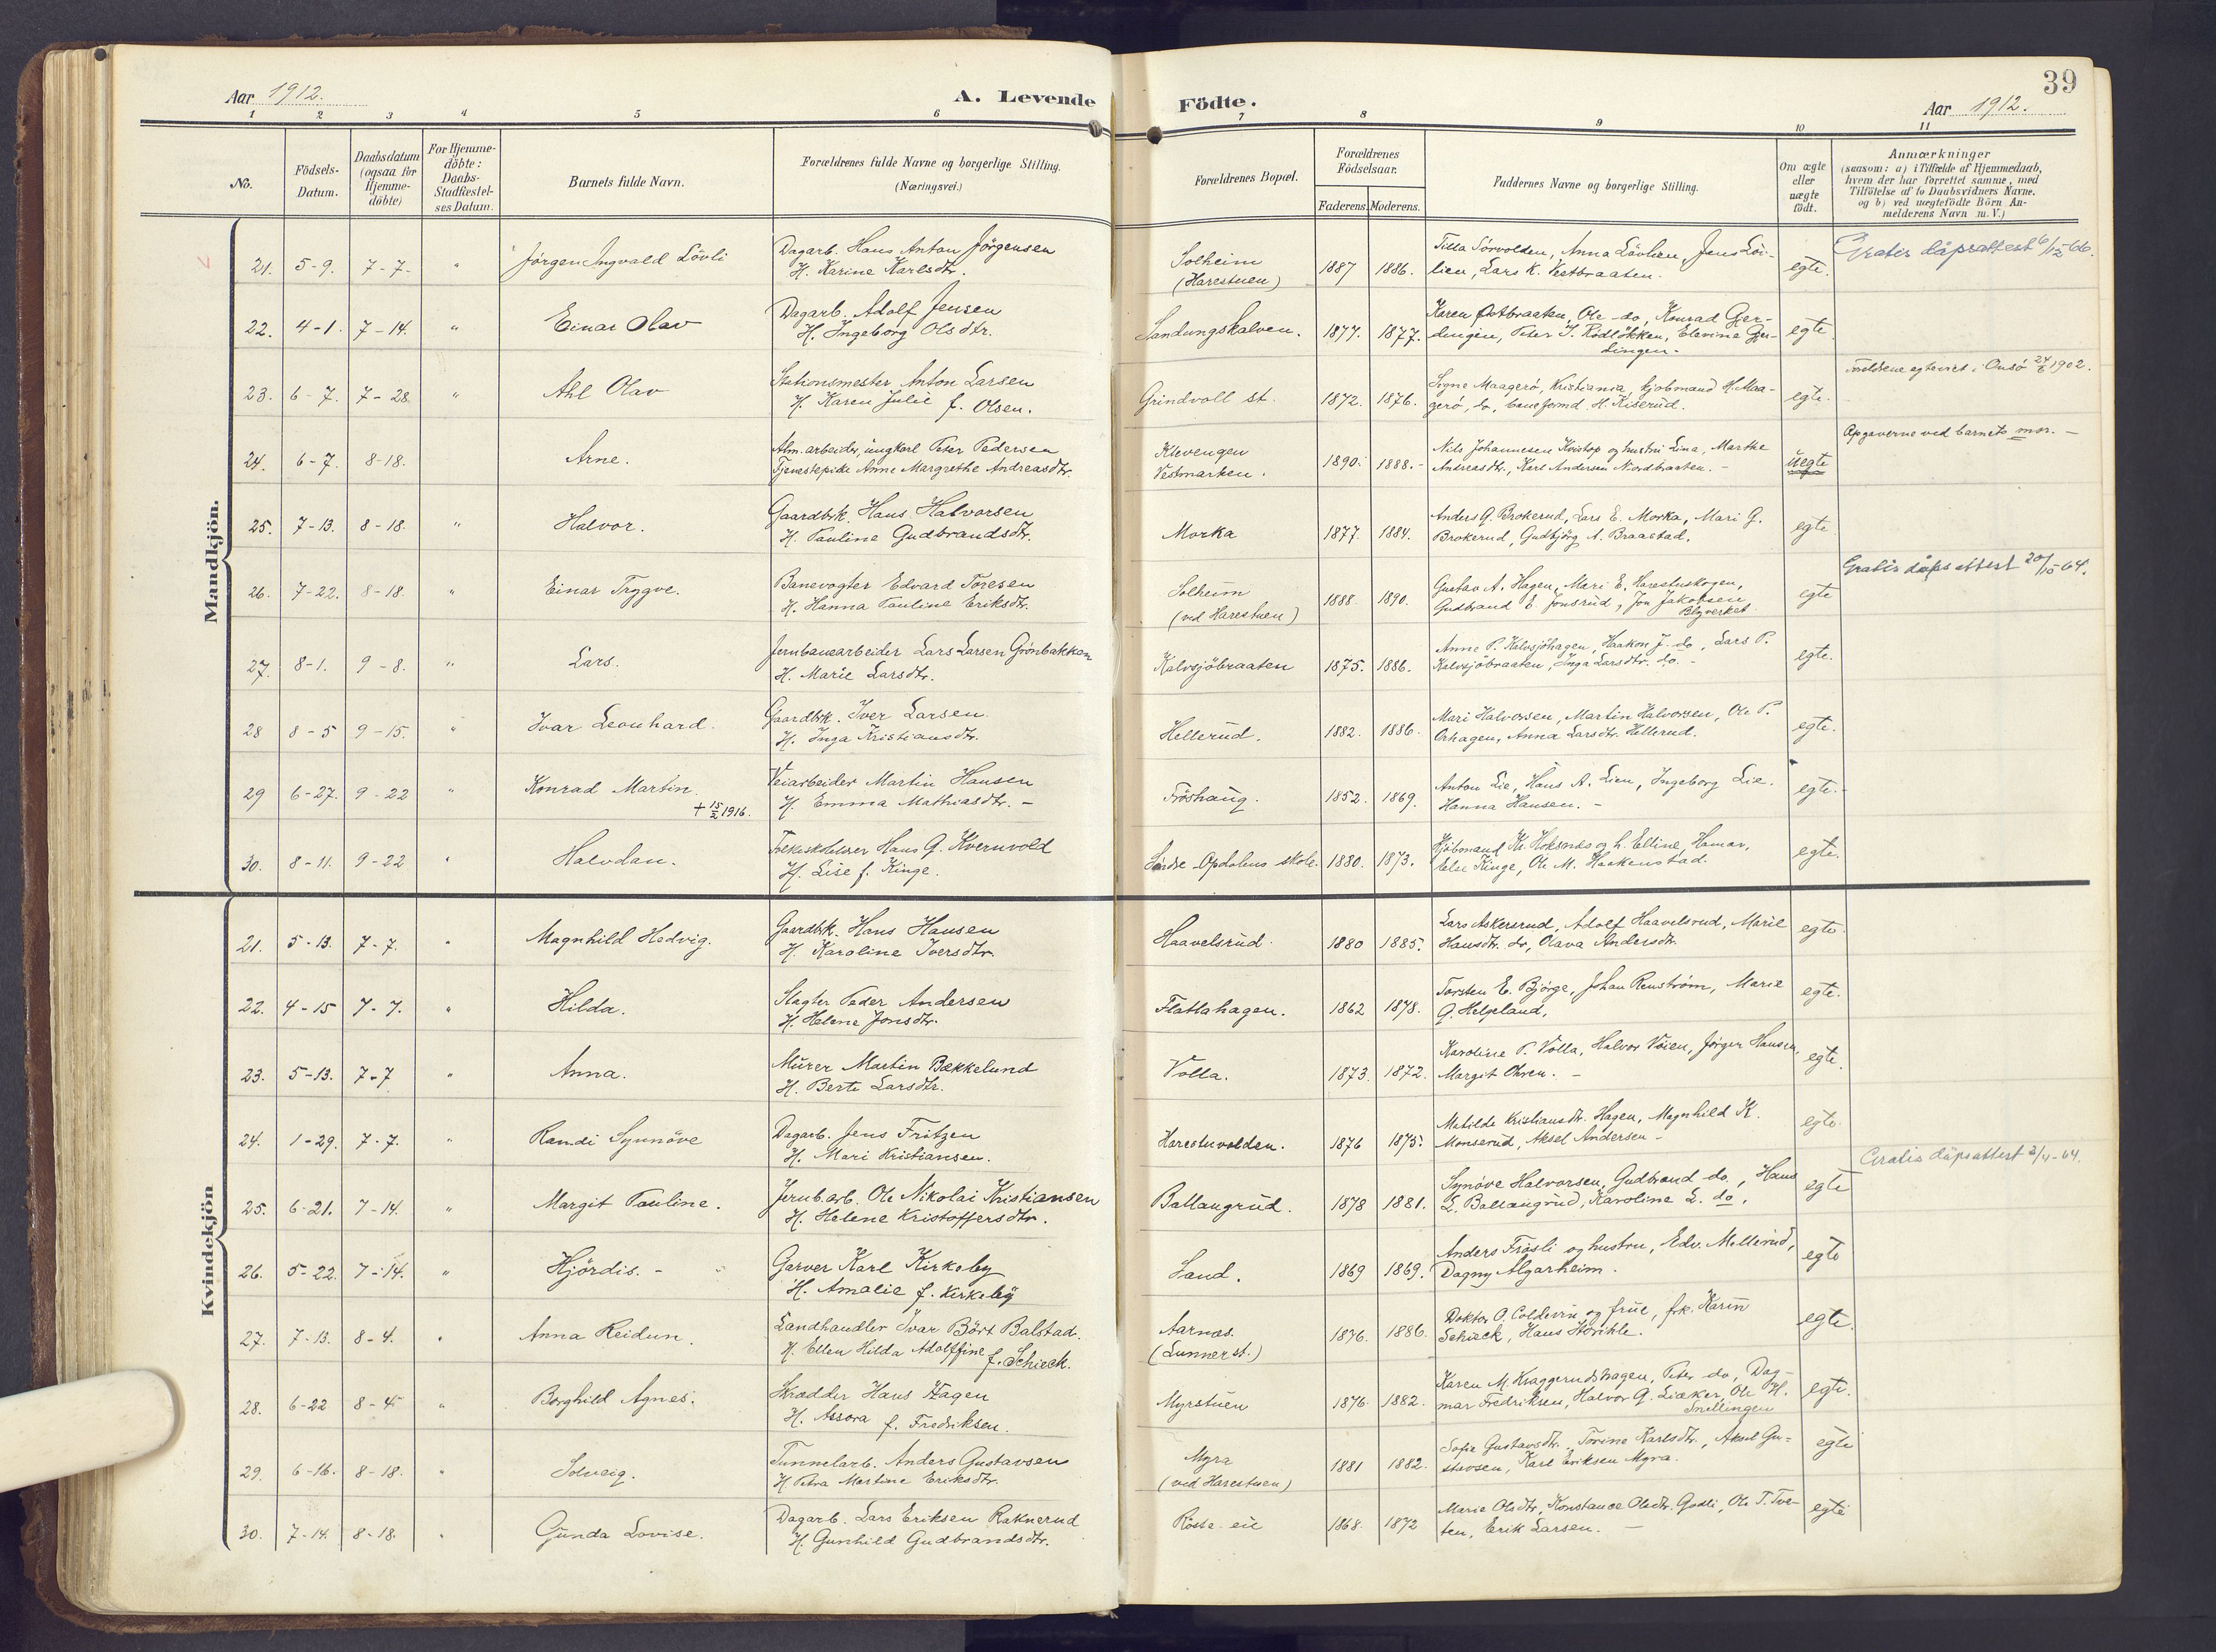 39
Aar 1912.
A. Levende Födte.
Aar 1912.
1 2 3 4 5 6 7 8 9 10 11
No.
Födsels-
Datum.
Daabsdatum
(ogsaa for
Hjemme-
döbte)
For Hjemme-
döbte:
Daabs-
Stadfæstel-
ses Datum.
Barnets fulde Navn.
Forældrenes fulde Navne og borgerlige Stilling.
(Næringsvei.)
Forældrenes Bopæl.
Forældrenes
Födselsaar.
Faderens. Moderens.
Faddernes Navne og borgerlige Stilling.
Om ægte
eller
uægte
födt.
Anmærkninger
(saasom: a) i Tilfælde af Hjemmedaab,
hvem der har forrettet samme, med
Tilföielse af to Daabsvidners Navne.
og b) ved uægtefödte Börn An-
melderens Navn m. V.)
Mandkjön.
21. 5-9. 7-7. " Jörgen Ingvald Lövli
Dagarb. Hans Anton Jörgensen
H. Karine Karlsdtr.
Solheim
(Harestuen)
1887 1886.
Tilla Sörvolden, Anna Lövlien, Jens Löv-
lien, Lars K. Vestbraaten.
egte.
Gratis dåpsattest 6/12 66.
22. 4-1. 7-14. " Einar Olav
Dagarb. Adolf Jensen
H. Ingeborg Olsdtr.
Sandungskalven.
1877. 1877.
Karen Østbraaten, Ole do, Konrad Ger-
dingen, Peter J. Rödlökken, Elevine Ger-
dingen.
egte
23. 6-7. 7-28. " Ahl Olav
Stationsmester Anton Larsen
H. Karen Julie f. Olsen.
Grindvoll st.
1872. 1876.
Signe Maagerö, Kristiania, kjøbmand H. Maa-
gerö, do, baneformd. H. Kiserud.
egte.
Foreldrene egteviet i Onsö 24/6 1902.
24. 6-7. 8-18. Arne.
Alm. arbeider, ungkarl Peter Pedersen
Tjenestepike Anne Margrethe Andreasdtr.
Klevengen
Vestmarken.
1890. 1888.
Nils Johannesen Kvistop og hustru Lina, Marthe
Andreasdtr., Karl Andersen Nordbraaten. -
uegte
Opgaverne ved barnets mor. -
25. 7-13. 8-18. " Halvor.
Gaardbrk. Hans Halvorsen
H. Pauline Gudbrandsdtr.
Morka
1877. 1884.
Anders G. Brokerud, Lars E. Morka, Mari G.
Brokerud, Gudbjörg A. Braastad.
egte
26. 7-22. 8-18. " Einar Trygve.
Banevogter Edvard Toresen
H. Hanna Pauline Eriksdtr.
Solheim
(ved Harestuen)
1888. 1890.
Gustav A. Hagen, Mari E. Harestuskogen,
Gudbrand E. Jonsrud, Jon Jakobsen
Blyverket
egte
Gratis dåpsattest 20/10 64.
27. 8-1. 9-8. " Lars.
Jernbanearbeider Lars Larsen Grönbakken
H. Marie Larsdtr.
Kalvsjöbraaten
1875. 1886.
Anne P. Kalvsjöhagen, Haakon J. do, Lars P.
Kalvsjöbraaten, Inga Larsdtr. do. -
egte.
28 8-5 9-15. " Ivar Leonhard.
Gaardbrk. Iver Larsen.
H. Inga Kristiansdtr.
Hellerud.
1882. 1886.
Mari Halvorsen, Martin Halvorsen, Ole P.
Orhagen, Anna Larsdtr. Hellerud.
egte.
29 6-27. 9-22 " Konrad Martin
+ 15/2 1916.
Veiarbeider Martin Hansen
H. Emma Mathiasdtr. -
Fröshaug.
1852. 1869.
Anton Lie, Hans A. Lien, Ingeborg Lie.
Hanna Hansen. -
egte.
30. 8-11. 9-22 " Halvdan.
Folkeskolelærer Hans G. Kvernvold
H. Lise f. Kinge.
Söndre Opdalens skole.
1880. 1873.
Kjöbmand Kr. Hoksnes og h. Elline, Hamar,
Else Kinge, Ole M. Haakenstad.
egte.
Kvindekjön
21. 5-13. 7-7. " Magnhild Hedvig.
Gaardbk. Hans Hansen
H. Karoline Iversdtr.
Haavelsrud
1880 1885.
Lars Askersrud, Adolf Haavelsrud, Marie
Hansdtr. do, Olava Andersdtr.
egte.
22. 4-15 7-7. " Hilda.
Slagter Peder Andersen
H. Helene Jonsdtr.
Flattahagen.
1862 1878.
Torsten E. Bjørge, Johan Renström, Marie
G. Helgeland.
egte.
23. 5-13. 7-7 " Anna.
Murer Martin Bækkelund
H. Berte Larsdtr.
Volla.
1873. 1872.
Karoline P. Volla, Halvor Voien, Jörgen Hansen,
Margit Ohren. -
egte.
24. 1-29. 7-7. " Randi Synnöve
Dagarb. Jens Fritzen
H. Mari Kristiansen.
Harestuvolden.
1876 1875.
Matilde Kristiansdtr. Hagen, Magnhild K.
Monserud, Aksel Andersen -
egte.
25. 6-21. 7-14. " Margit Pauline.
Jernb.arb. Ole Nikolai Kristiansen
H. Helene Kristoffersdtr.
Ballangrud.
1878 1881.
Synöve Halvorsen, Gudbrand do., Hans
L. Ballangrud, Karoline L. do.
egte
Gratis dåpsattest 2/11-64.
26. 5-22. 7-14. " Hjördis. -
Garver Karl Kirkeby
H. Amalie f. Kirkeby
Sand.
1869 1869.
Anders Fröisli og hustru, Edv. Mellerud,
Dagny Algarheim.
egte
27. 7-13. 8-4. " Anna Reidun.
Landhandler Ivar Börs Balstad.
H. Ellen Hilda Adolffine f. Schieck.
Aarnæs.
(Lunner st.)
1876. 1886.
Doktor O. Coldevin og frue, frk. Karin
Schieck, Hans
egte.
28. 6-22 8-4 " Borghild Agnes.
Skrædder Hans Hagen
H. Assora f. Fredriksen.
Myrstuen
1876. 1882.
Karen M. Kraggerudshagen, Peter do, Dag-
mar Fredriksen, Halvor G. Liaker, Ole H.
Snellingen
egte.
29. 6-16. 8-18. " Solveig.
Tunnelarb. Anders Gustavsen
H. Petra Martine Eriksdtr.
Myra
(ved Harestuen)
1881 1882.
Sofie Gustavsdtr., Torine Karlsdtr., Aksel Gu-
stavsen, Karl Eriksen Myra.
egte
30. 7-14. 8-18. " Gunda Lovise.
Dagarb. Lars Eriksen Raknerud
H. Gunhild Gudbrandsdtr.
Röste eie
1868. 1872
Marie Olsdtr, Konstance Olsdtr. Godli, Ole T. Tve-
ten, Erik Larsen. -
egte